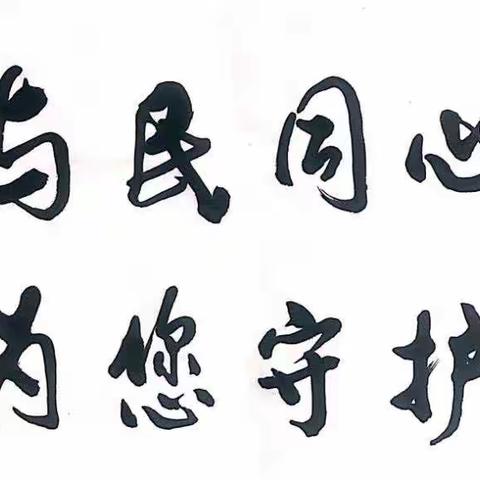 与民同心
为您守护